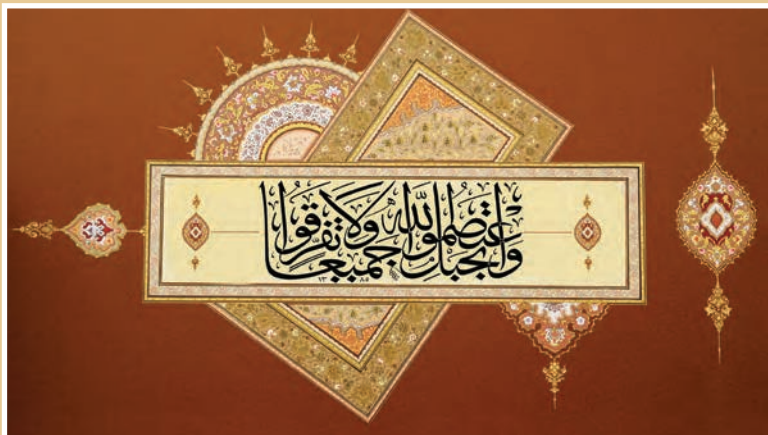 وَاعْتَصِمُوا بِحَبْلِ اللّٰهِ جَمِيعًا وَلَا تَفَرَّقُوا
١٣٨٥